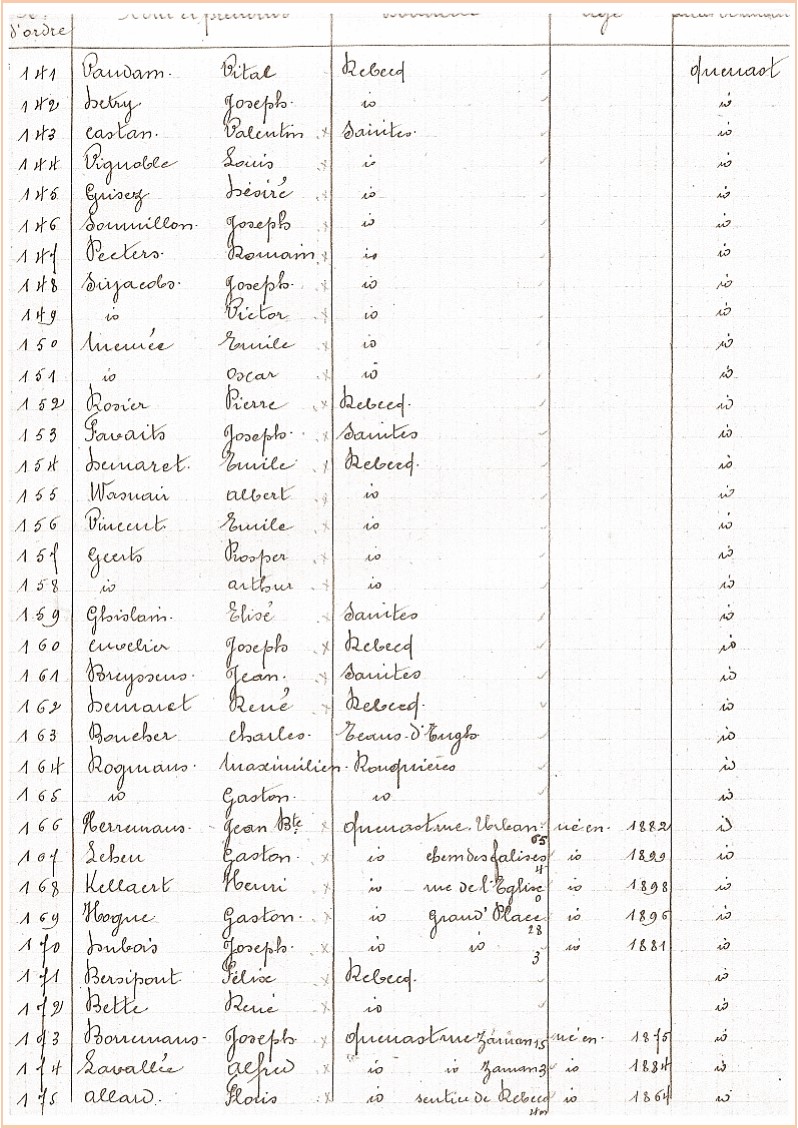 d'ordre Nom et prénoms
141 Vandam. Vital Rebecq Quenast
142 Detry Joseph. io io
143 Castan. Valentin x Saintes. io
144 Vignoble Louis x io io
145 Guisez Désiré x io io
146 Soumillon. Joseph x io io
147 Peeters. Romain x io io
148 Sirjacobs. Joseph. x io io
149 io Victor x io io
150 Emile x io io
151 io Oscar x io io
152 Rosier Pierre x Rebecq. io
153 Favaits Joseph. x Saintes io
154 Demaret. Emile x Rebecq. io
155 Wasnair Albert x io io
156 Vincent. Emile x io io
157 Geerts Prosper x io io
158 io Arthur x io io
159 Ghislain. Elisé x Saintes io
160 Cuvelier Joseph x Rebecq io
161 Breyssens. Jean. x Saintes io
162 Demaret René x Rebecq. io
163 Boucher Charles. Teans. d'Engh io
164 Rogmans. Maximilien. Ronquières io
165 io Gaston. io io
166 Herremans. Jean Bte x Quenast rue. Urban. 65 né en. 1882 io
167 Leheu Gaston. x io chem des falises 4 io 1899 io
168 Kellaert Henri x io rue de l'Eglise 0 io 1898 io
169 Hogne Gaston. x io Grand' Place 28 io 1896 io
170 Dubois Joseph. x io io 3 io 1881 io
171 Bersipont Félix x Rebecq. io
172 Bette René x io io
173 Borremans. Joseph x Quenast rue Zaman 15 né en. 1875 io
174 Lavallée Alfred x io io Zaman 3 io 1884 io
175 Allard. Floris x io sentier de Rebecq io 1864 io